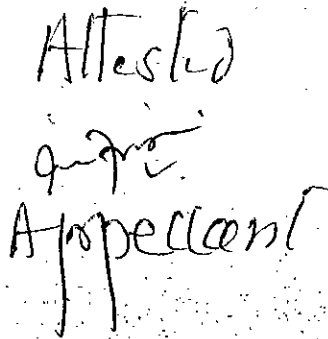 Attested
Appellant